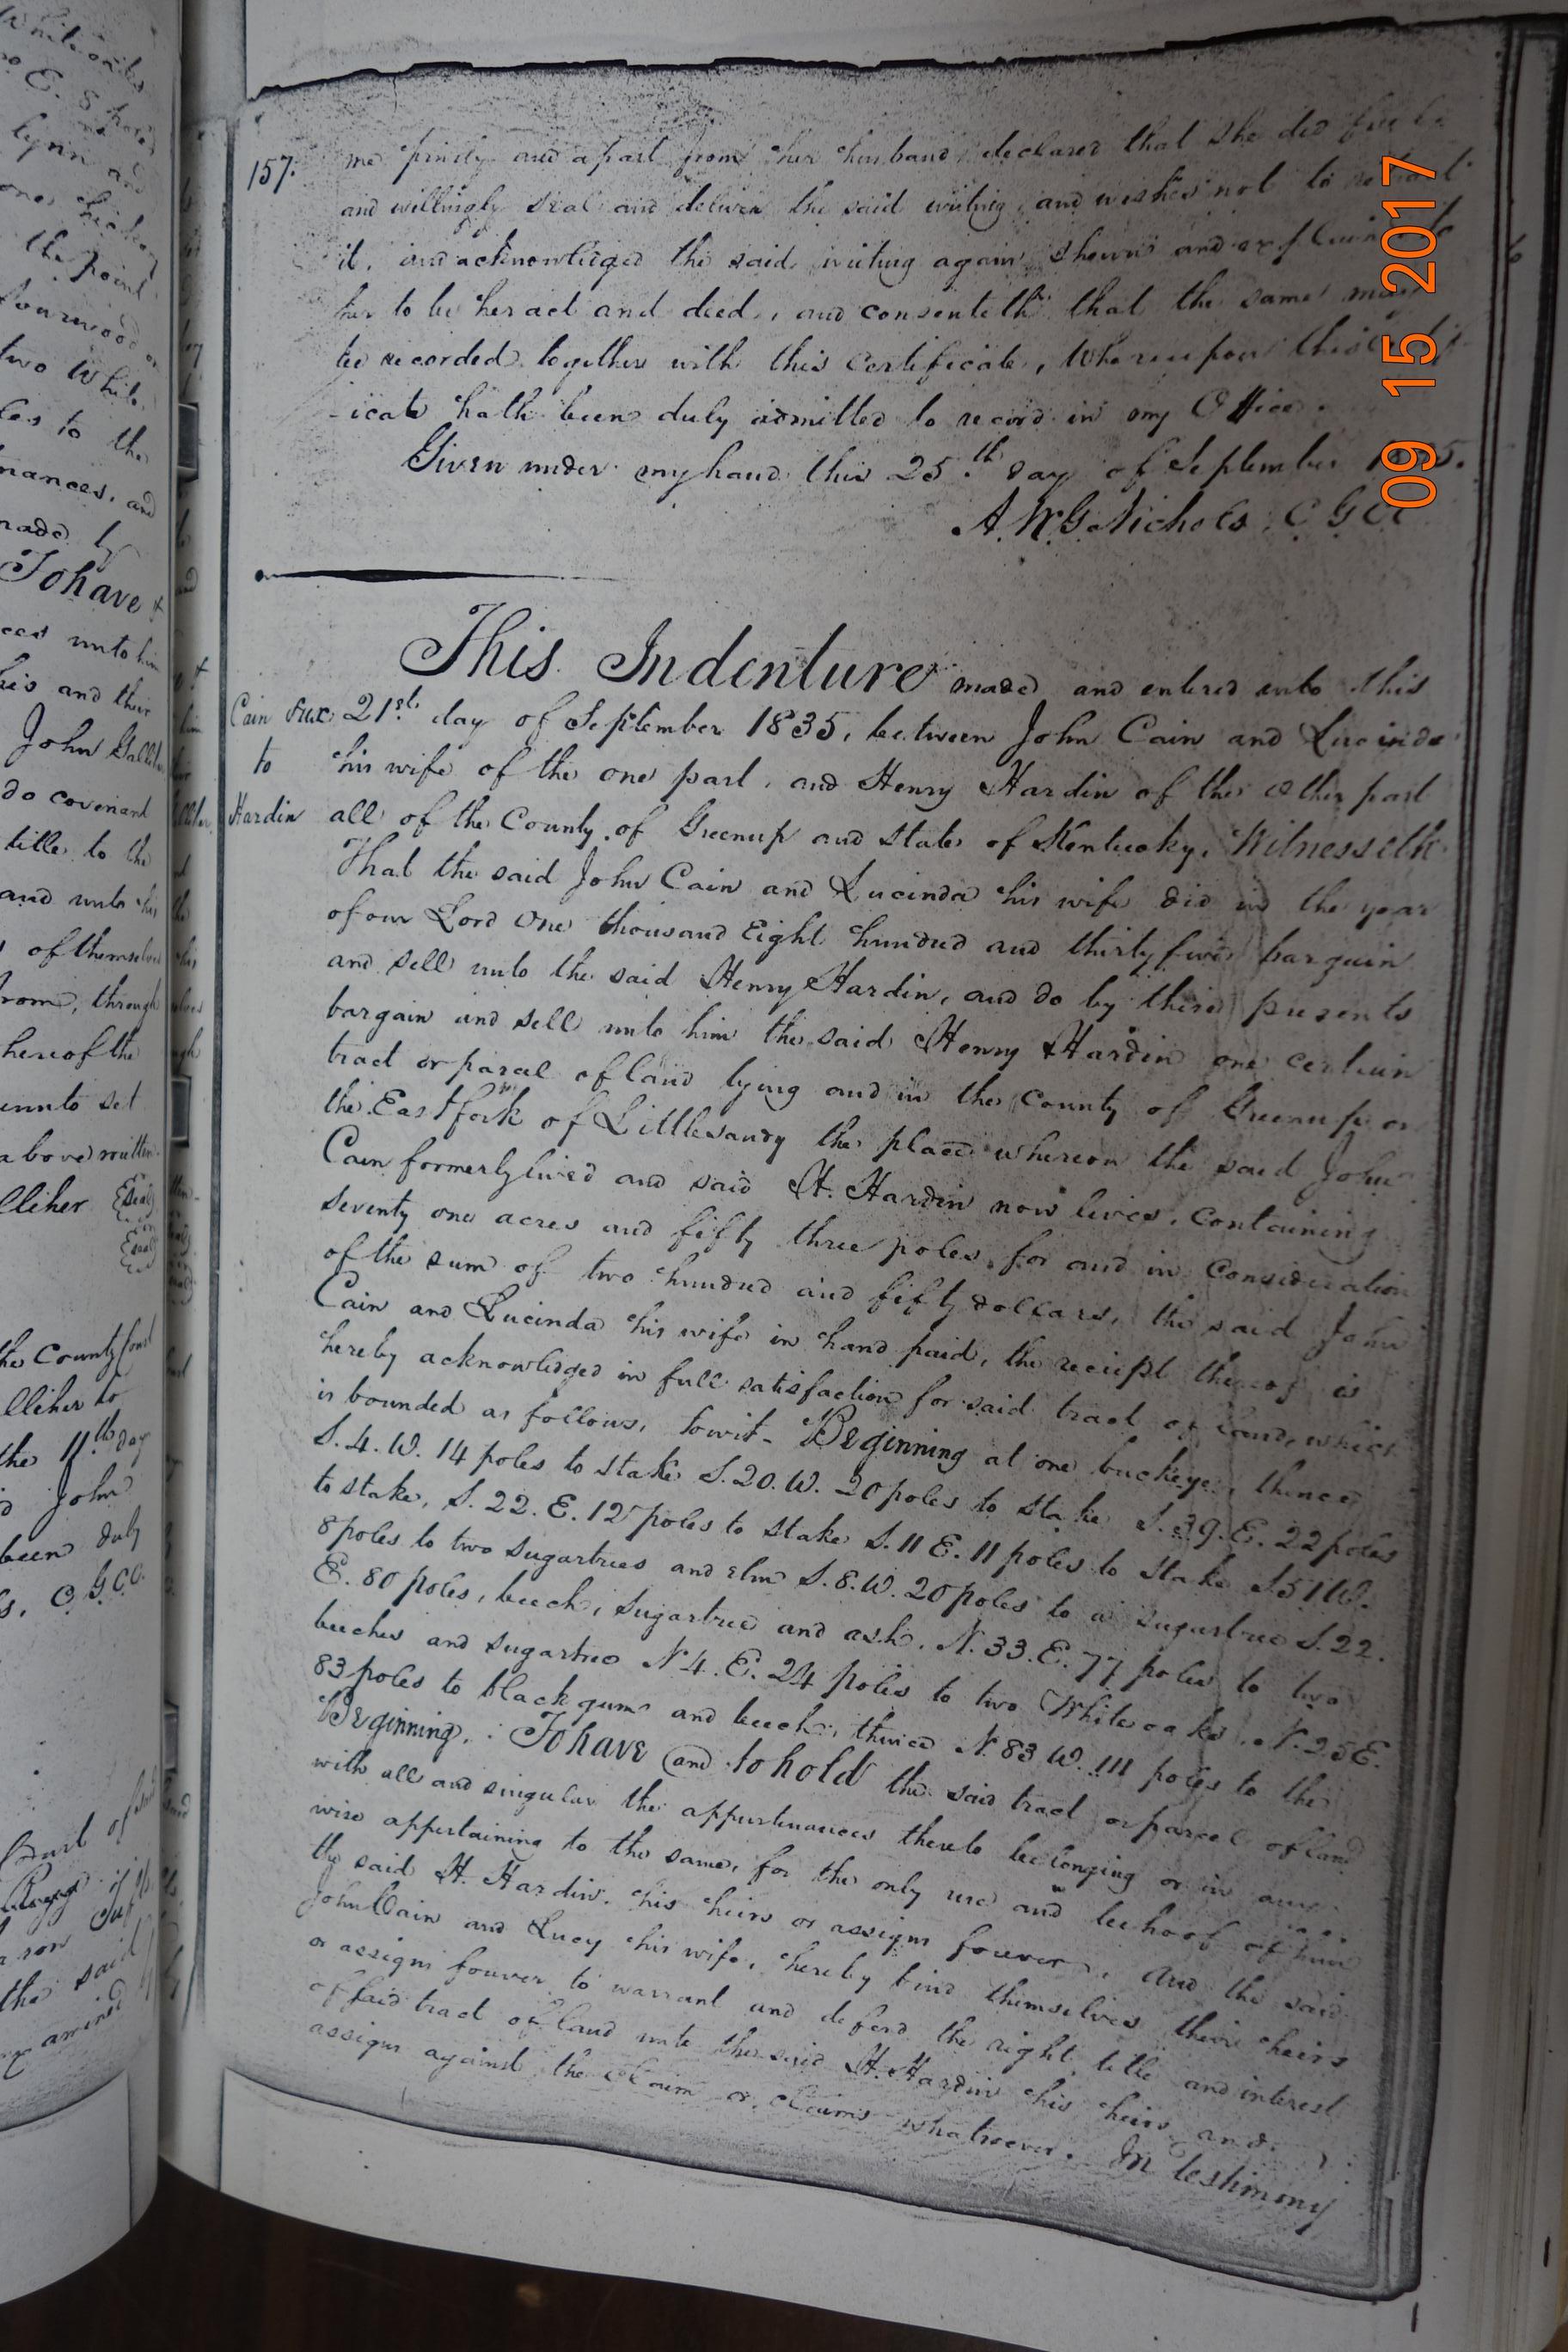 157.
me privily and apart from her husband, declared that she did freely
and willingly seal and deliver the said writing, and wishes not to retract
it, and acknowledged the said writing again shewn and explained to
her to be her act and deed, and consenteth that the same may
be recorded together with this Certificate, Whereupon this Certif-
-icate hath been duly admitted to record in my Office.
Given under my hand this 25th day of September 1835.
A. W. G. Nichols, C G C C
This Indenture made and entered into this
Cain & ux: 21st day of September 1835, between John Cain and Lucinda
to his wife of the one part, and Henry Hardin of the other part
Hardin all of the County of Greenup and State of Kentucky, Witnesseth
That the said John Cain and Lucinda his wife did in the year
of our Lord One thousand Eight hundred and thirty five bargain
and sell unto the said Henry Hardin, and do by these presents
bargain and sell unto him the said Henry Hardin one certain
tract or parcel of land lying and in the County of Greenup on
the East fork of Little sandy the place whereon the said John
Cain formerly lived and said H. Hardin now lives, containing
seventy one acres and fifty three poles, for and in consideration
of the sum of two hundred and fifty dollars, the said John
Cain and Lucinda his wife in hand paid, the reciept thereof is
hereby acknowledged in full satisfaction for said tract of land, which
is bounded as follows, towit- Beginning at one buckeye, thence
S. 4. W. 14 poles to stake S. 20. W. 20 poles to stake S. 39. E. 22 poles
to stake, S. 22. E. 12 poles to stake S. 11 E. 11 poles to stake S. 51 W.
8 poles to two sugartrees and elm S. 8. W. 20 poles to a sugartree S. 22.
E. 80 poles, beech, sugartree and ash, N. 33. E. 77 poles to two
beeches and sugartree N 4. E. 24 poles to two Whiteoaks, N. 25 E.
83 poles to black gum and beech, thence N. 83 W. 111 poles to the
Beginning. To have and to hold the said tract or parcel of land
with all and singular the appurtenances thereto belonging or in any
wise appertaining to the same, for the only use and behoof of him
the said H. Hardin, his heirs or assigns forever, And the said
John Cain and Lucy his wife, hereby bind themselves their heirs
or assigns forever to warrant and defend the right title and interest
of said tract of land unto the said H. Hardin his heirs and
assigns against the claim or claims whatsoever. In testimony
09 15 2017